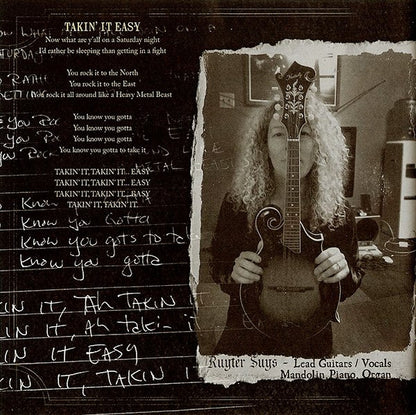 TAKIN' IT EASY
Now what are y'all on a Saturday night
I'd rather be sleeping than getting in a fight
You rock it to the North
You rock it to the East
You rock it all around like a Heavy Metal Beast
You know you gotta
You know you gotta
You know you gotta
You know you gotta to take it
TAKIN' IT, TAKIN' IT... EASY
TAKIN' IT, TAKIN' IT... EASY
TAKIN' IT, TAKIN' IT... EASY
TAKIN' IT, TAKIN' IT...
Know
Know you Gotta
Know you gots to ta
Know you gotta
KIN IT, Ah TAKIN IT
IN IT, Ah takin it
IN IT EASY
IN IT, TAKIN IT
Ruyter Suys - Lead Guitars / Vocals
Mandolin, Piano, Organ